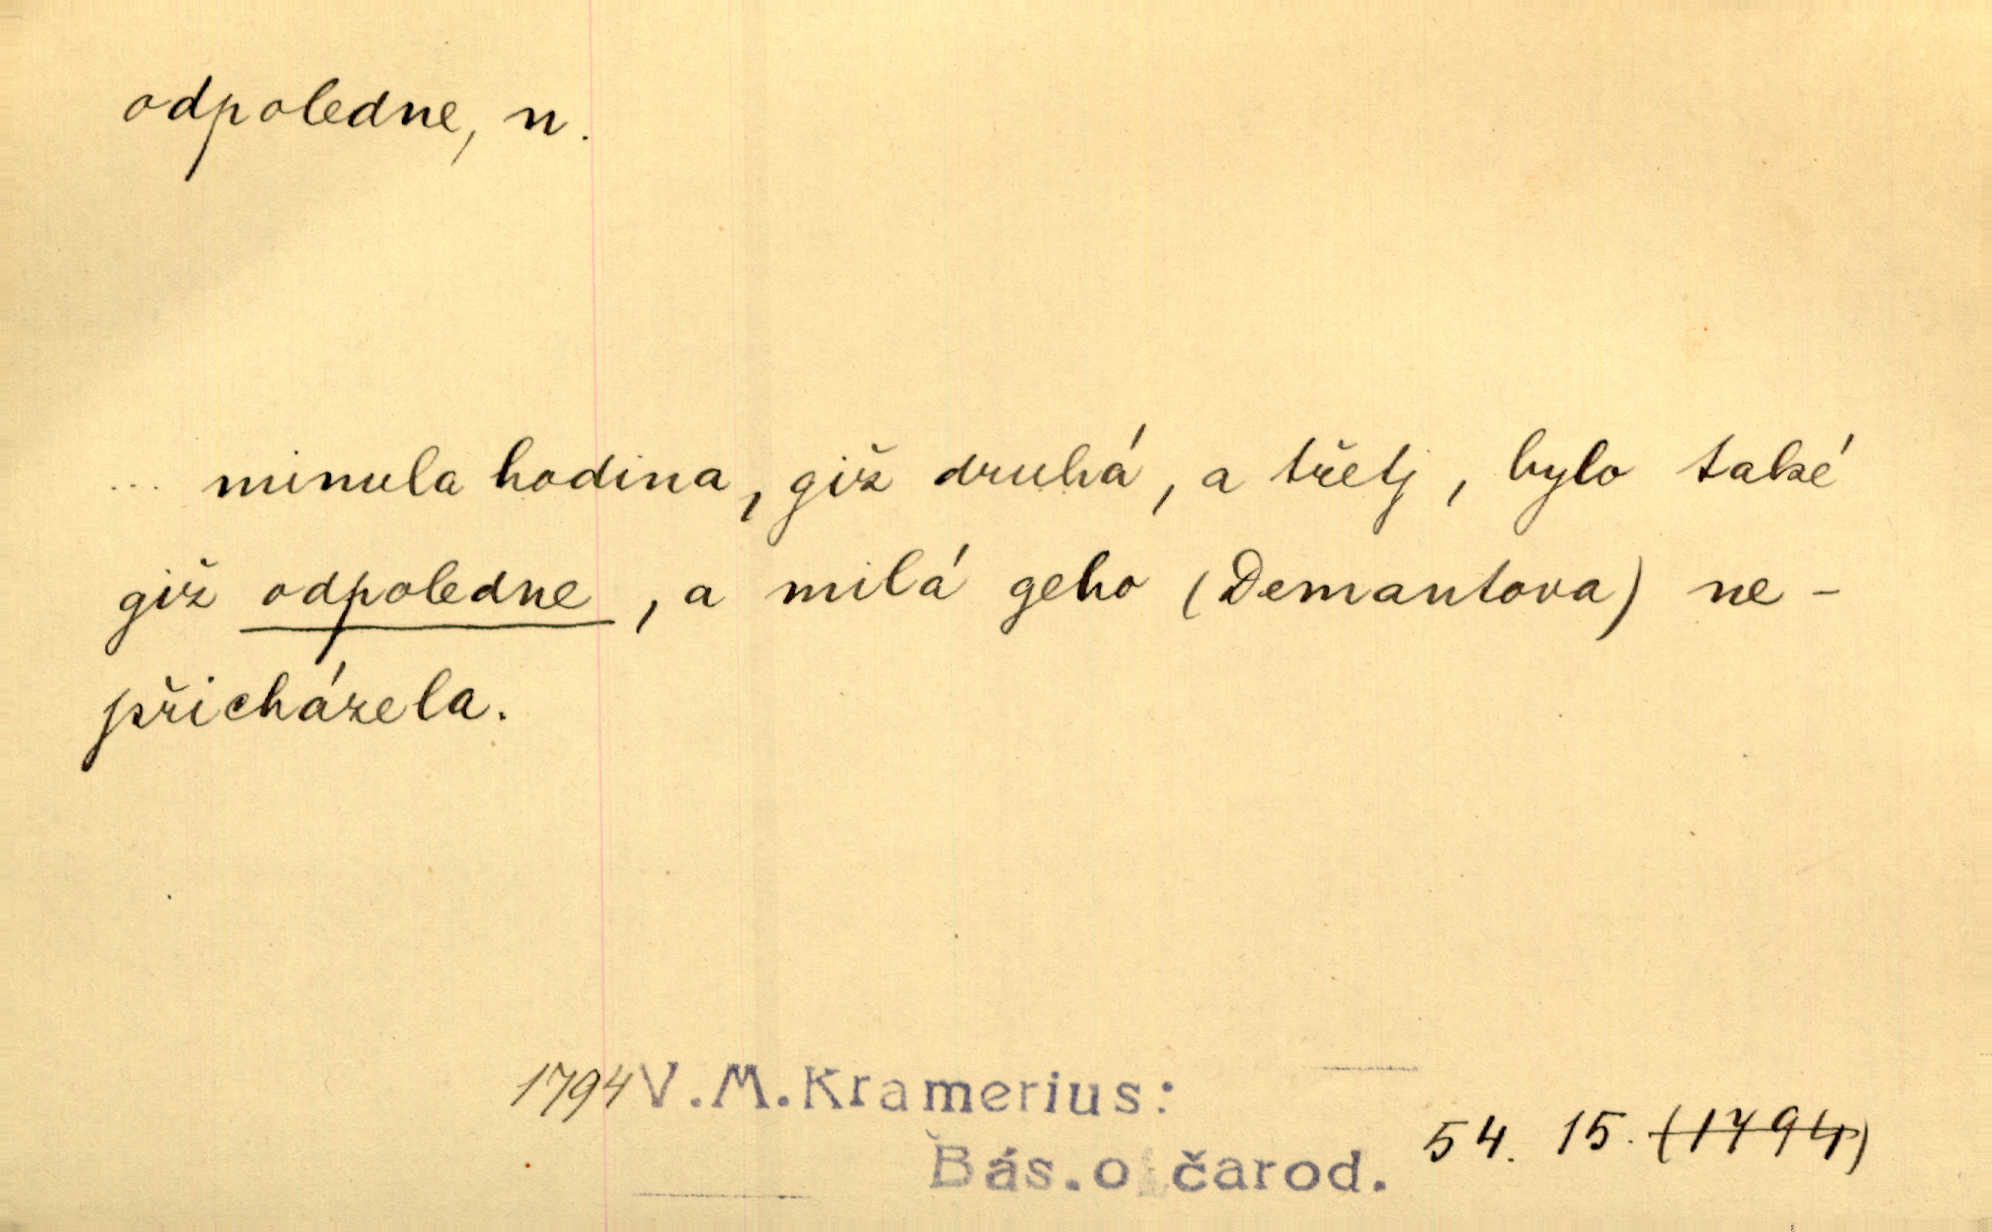 odpoledne, n.
... minula hodina, giž druhá, a třetj, bylo také
giž odpoledne, a milá geho (Demantova) ne-
přicházela.
1794 V. M. Kramerius:
Bás. o čarod. 54. 15. (1794)